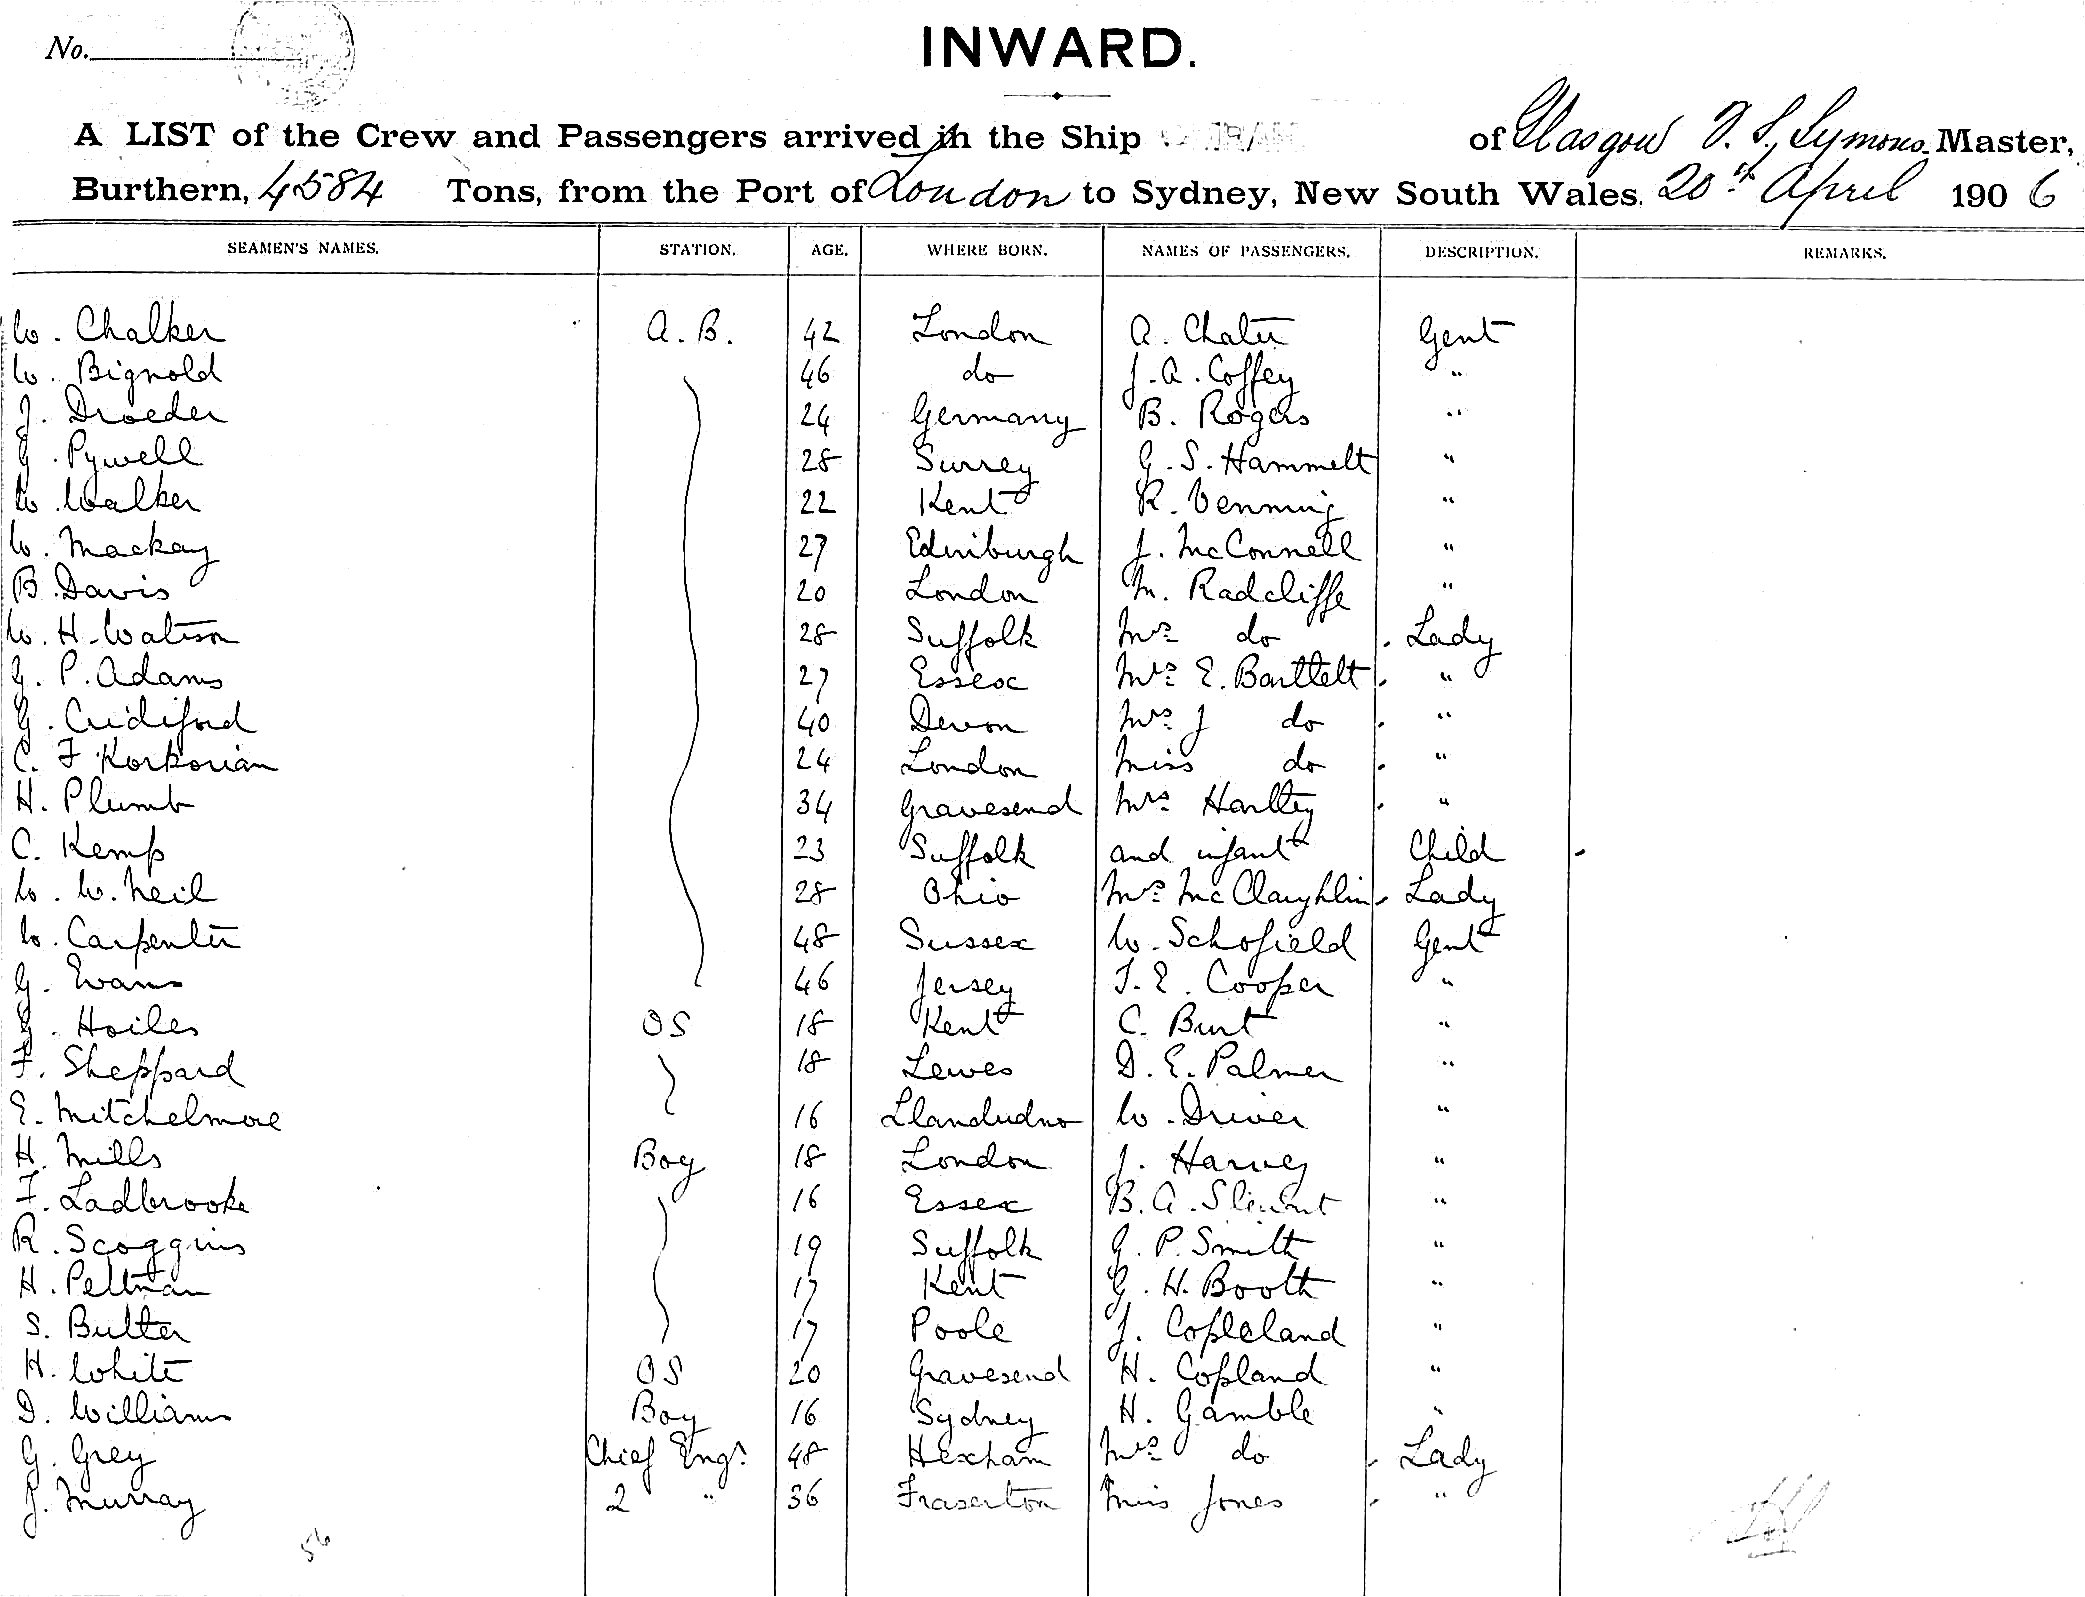 No.
INWARD.
A LIST of the Crew and Passengers arrived in the Ship of Glasgow Symons Master,
Burthern, 4584 Tons, from the Port of London to Sydney, New South Wales. 20th April 1906
SEAMEN'S NAMES. STATION. AGE. WHERE BORN. NAMES OF PASSENGERS. DESCRIPTION. REMARKS.
W. Chalker A.B. 42 London A. Chater Gent
W. Bignold 46 do J.A. Coffey "
J. Droeder 24 Germany B. Rogers "
G. Pywell 28 Surrey G.S. Hammelt "
W. Walker 22 Kent R. Venning "
W. Mackay 27 Edinburgh J. McConnell "
B. Davis 20 London M. Radcliffe "
W. H. Watson 28 Suffolk Mrs do Lady
G. P. Adams 27 Essex Mrs E. Bartlelt "
G. Cridiford 40 Devon Mrs J do "
C. F Korkorian 24 London Miss do "
H. Plumb 34 Gravesend Mrs Hartley "
C. Kemp 23 Suffolk and infant Child
W. W. Neil 28 Ohio Mrs McClaughlin Lady
W. Carpenter 48 Sussex W. Schofield Gent
G. Evans 46 Jersey T.E. Cooper "
G. Hoiles OS 18 Kent C. Burt "
F. Sheppard 18 Lewes D.E. Palmer "
E. Mitchelmore 16 Llandudno W. Driver "
H. Mills Boy 18 London J. Harvey "
F. Ladbrooke 16 Essex B.A. "
R. Scoggins 19 Suffolk G.P. Smith "
H. Peltman 17 Kent G.H. Booth "
S. Butter 17 Poole J. Copleland "
H. White OS 20 Gravesend H. Copland "
D. Williams Boy 16 Sydney H. Gamble "
G. Grey Chief Engr 48 Hexham Mrs do Lady
J. Murray 2 " 36 Fraserton Miss Jones "
56